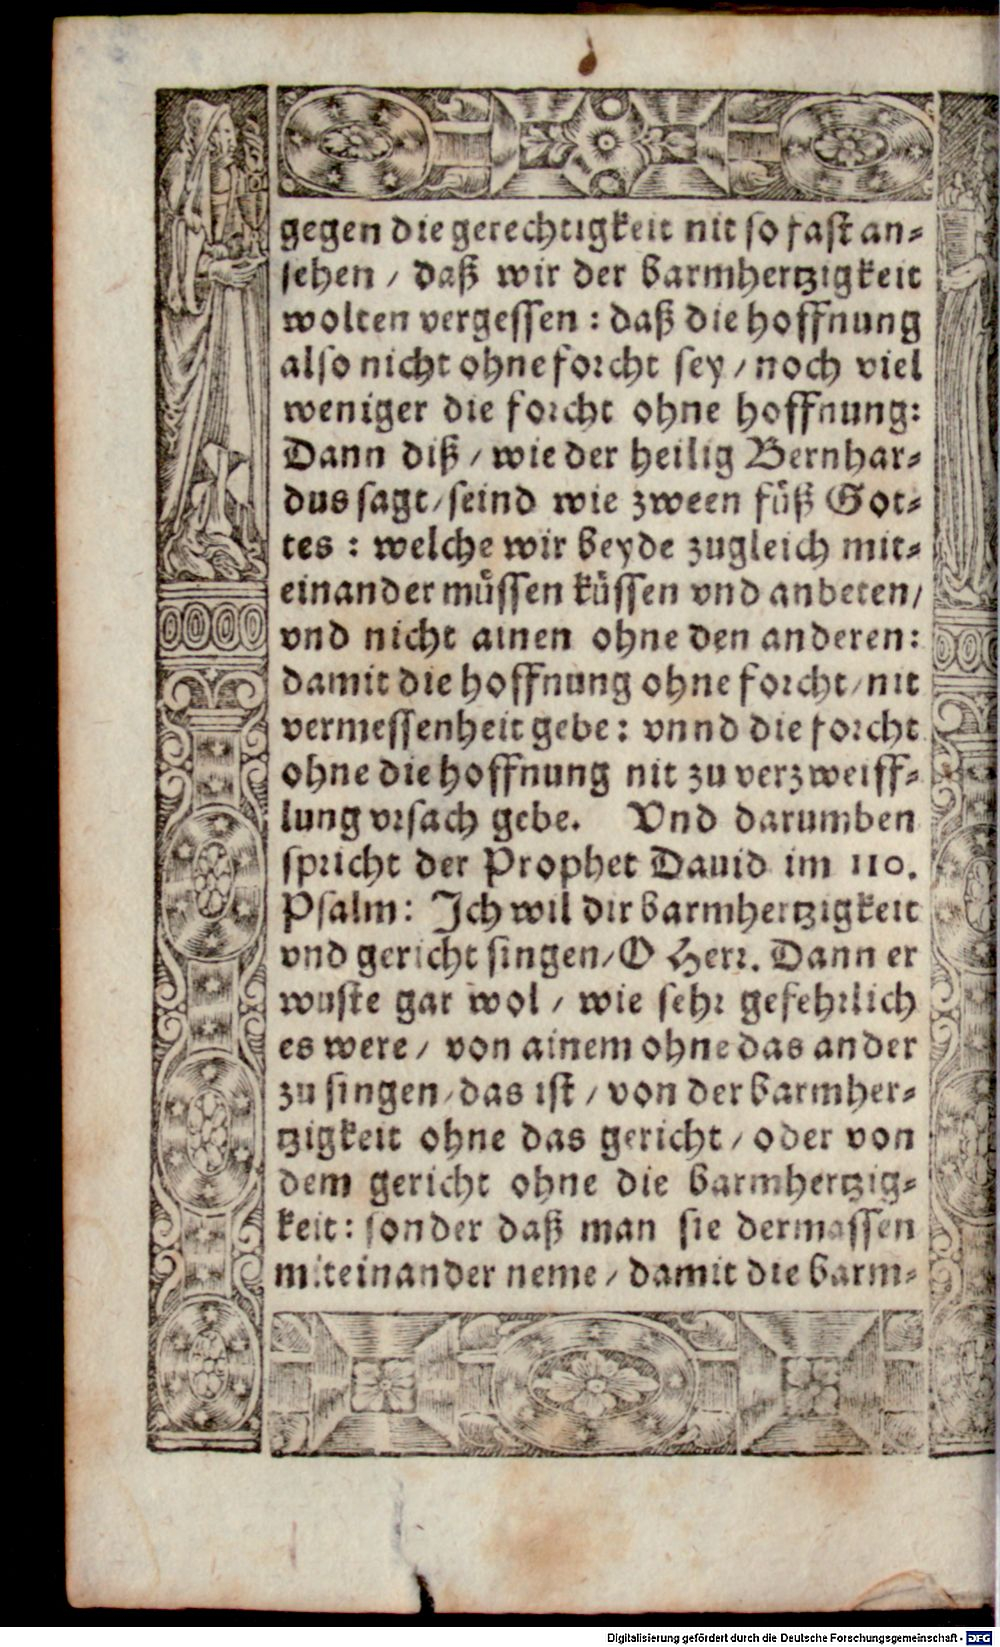 gegen die gerechtigkeit nit so fast an⸗
sehen / daß wir der barmhertzigkeit
wolten vergessen : daß die hoffnung
also nicht ohne forcht sey / noch viel
weniger die forcht ohne hoffnung:
Dann diß / wie der heilig Bernhar⸗
dus sagt / seind wie zween füß Got⸗
tes : welche wir beyde zugleich mit⸗
einander müssen küssen vnd anbeten /
vnd nicht ainen ohne den anderen:
damit die hoffnung ohne forcht / nit
vermessenheit gebe : vnnd die forcht
ohne die hoffnung nit zu verzweiff⸗
lung vrsach gebe. Vnd darumben
spricht der Prophet Dauid im 110.
Psalm: Ich wil dir barmhertzigkeit
vnd gericht singen / O Herr. Dann er
wuste gar wol / wie sehr gefehrlich
es were / von ainem ohne das ander
zu singen / das ist / von der barmher⸗
tzigkeit ohne das gericht / oder von
dem gericht ohne die barmhertzig⸗
keit : sonder daß man sie dermassen
miteinander neme / damit die barm⸗
Digitalisierung gefördert durch die Deutsche Forschungsgemeinschaft - DFG